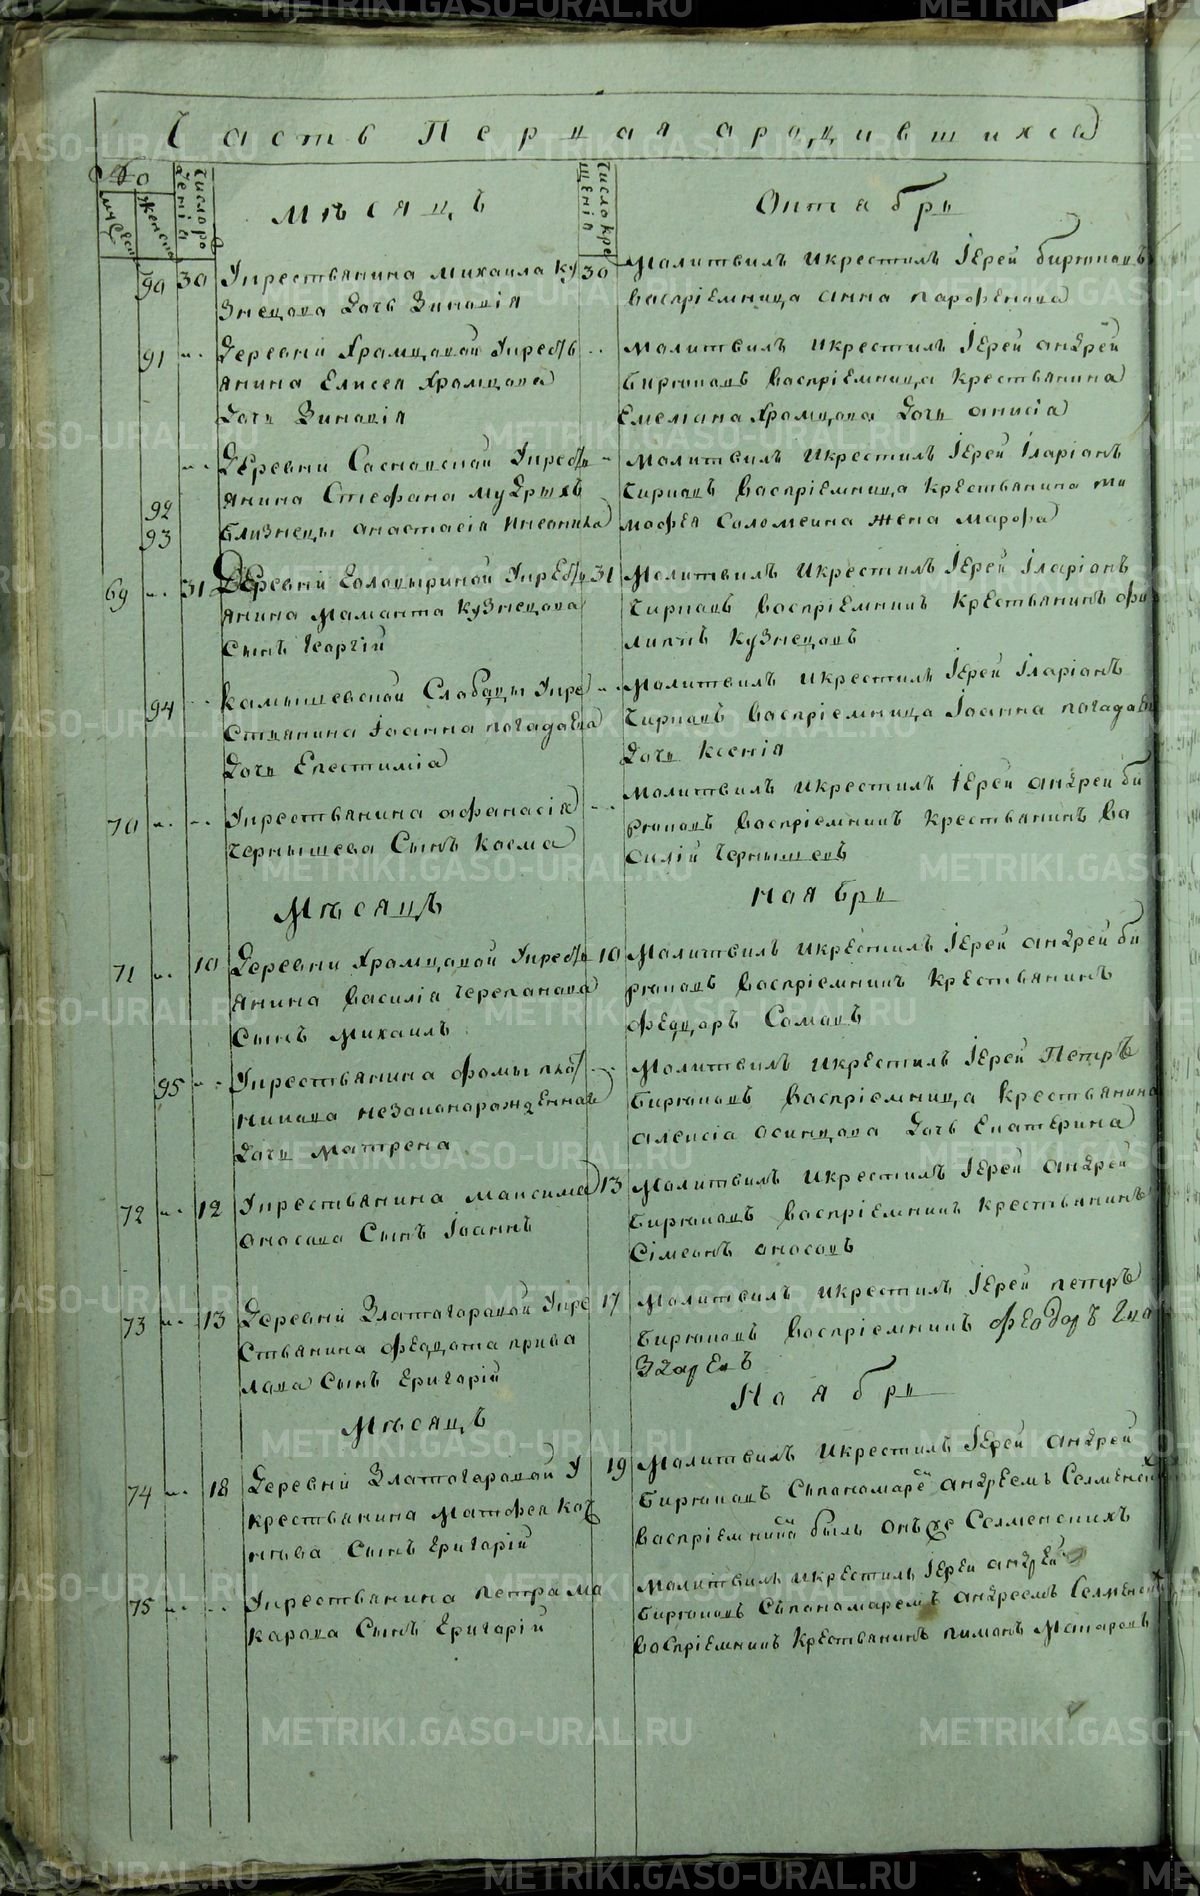 Часть Первая ародившихся
№
мужеск
женска
Число рождения
Мѣсяцъ
Число крещения
Октябрь
90 30 Укрестьянина Михаила Ку
знецова Дочь Зиновія
30 Молитвилъ икрестилъ Іерей бирюковъ
воспріемница анна парфенова
91 Деревни Храмцовой Укресть
янина Елисея Храмцова
Дочь Зиновія
Молитвилъ икрестилъ Іерей андрей
бирюковъ воспріемница крестьянина
Емельяна Храмцова Дочь анисіа
Деревни Сосновской Укресть
92 янина Стефана мудрыхъ
93 близнецы анастасія
Молитвилъ икрестилъ Іерей Іларіонъ
Чирковъ воспріемница крестьянина ти
мофея Соломеина жена марфа
69 31 Деревни Голодыриной Укресть
янина маманта кузнецова
сынъ Георгій
31 Молитвилъ икрестилъ Іерей Іларіонъ
Чирковъ воспріемникъ крестьянинъ фи
липпъ кузнецовъ
94 камышевской Слободы Укре
стьянина Іоанна погадаева
Дочь Епестиміа
Молитвилъ икрестилъ Іерей Іларіонъ
Чирковъ воспріемница Іоанна погадаева
Дочь ксенія
70 Укрестьянина афанасія
чернышева Сынъ косма
Молитвилъ икрестилъ Іерей андрей би
рюковъ воспріемникъ крестьянинъ ва
силій чернышевъ
Мѣсяцъ
Ноябрь
71 10 Деревни Храмцовой Укресть
янина василія черепанова
сынъ михаилъ
10 Молитвилъ икрестилъ Іерей андрей би
рюковъ воспріемникъ крестьянинъ
феодоръ Сомовъ
95 Укрестьянина фомы пло
никова незаконорожденная
Дочь матрена
Молитвилъ икрестилъ Іерей Петръ
бирюковъ воспріемница крестьянина
алексіа осинцова Дочь Екатерина
72 12 Укрестьянина максима
оносова Сынъ Іоаннъ
13 Молитвилъ икрестилъ Іерей андрей
бирюковъ воспріемникъ крестьянинъ
Сімеонъ оносовъ
73 13 Деревни Златогоровой Укре
стьянина феодота прива
лова Сынъ Григорій
17 Молитвилъ икрестилъ Іерей петръ
бирюковъ воспріемникъ феодоръ Гла
Мѣсяцъ
Ноябрь
74 18 Деревни Златогоровой У
крестьянина Матфея
Сынъ Григорій
19 Молитвилъ икрестилъ Іерей андрей
бирюковъ Съпономаремъ андреемъ Селменск
воспріемникъ былъ онъже Селменскихъ
75 Укрестьянина петра ма
карова Сынъ Григорій
Молитвилъ икрестилъ Іерей андрей
бирюковъ Съпономаремъ андреемъ Селменск
воспріемникъ крестьянинъ пиманъ Макаровъ
METRIKI.GASO-URAL.RU